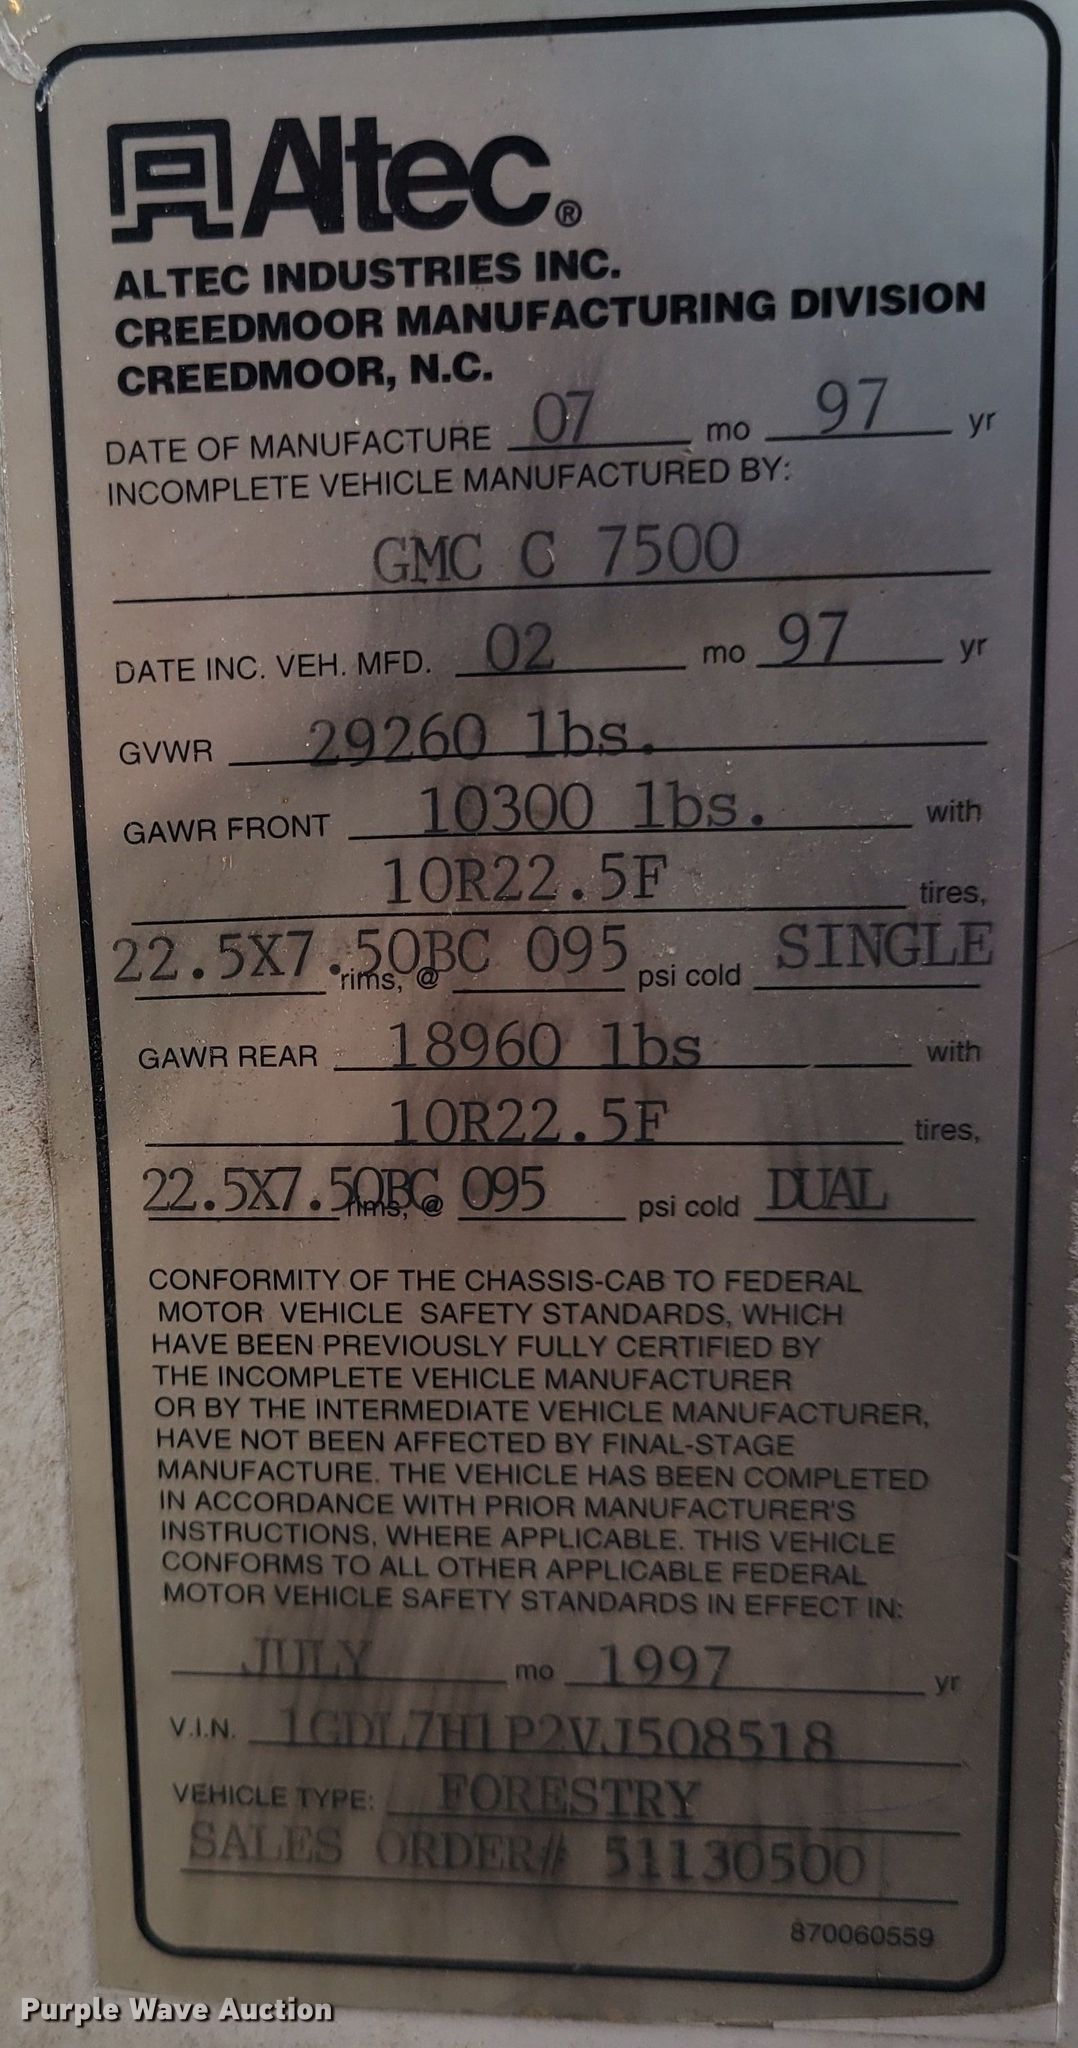 Altec®
ALTEC INDUSTRIES INC.
CREEDMOOR MANUFACTURING DIVISION
CREEDMOOR, N.C.
DATE OF MANUFACTURE 07 mo 97 yr
INCOMPLETE VEHICLE MANUFACTURED BY:
GMC C 7500
DATE INC. VEH. MFD. 02 mo 97 yr
GVWR 29260 lbs.
GAWR FRONT 10300 lbs. with
10R22.5F tires,
22.5X7.50BC rims, @ 095 psi cold SINGLE
GAWR REAR 18960 lbs with
10R22.5F tires,
22.5X7.50BC rims, @ 095 psi cold DUAL
CONFORMITY OF THE CHASSIS-CAB TO FEDERAL
MOTOR VEHICLE SAFETY STANDARDS, WHICH
HAVE BEEN PREVIOUSLY FULLY CERTIFIED BY
THE INCOMPLETE VEHICLE MANUFACTURER
OR BY THE INTERMEDIATE VEHICLE MANUFACTURER,
HAVE NOT BEEN AFFECTED BY FINAL-STAGE
MANUFACTURE. THE VEHICLE HAS BEEN COMPLETED
IN ACCORDANCE WITH PRIOR MANUFACTURER'S
INSTRUCTIONS, WHERE APPLICABLE. THIS VEHICLE
CONFORMS TO ALL OTHER APPLICABLE FEDERAL
MOTOR VEHICLE SAFETY STANDARDS IN EFFECT IN:
JULY mo 1997 yr
V.I.N. 1GDL7H1P2VJ508518
VEHICLE TYPE: FORESTRY
SALES ORDER# 51130500
870060559
Purple Wave Auction